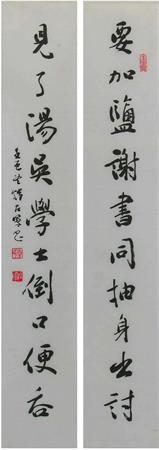 要加鹽謝書同抽身出討
見了湯吳學士倒口便吞